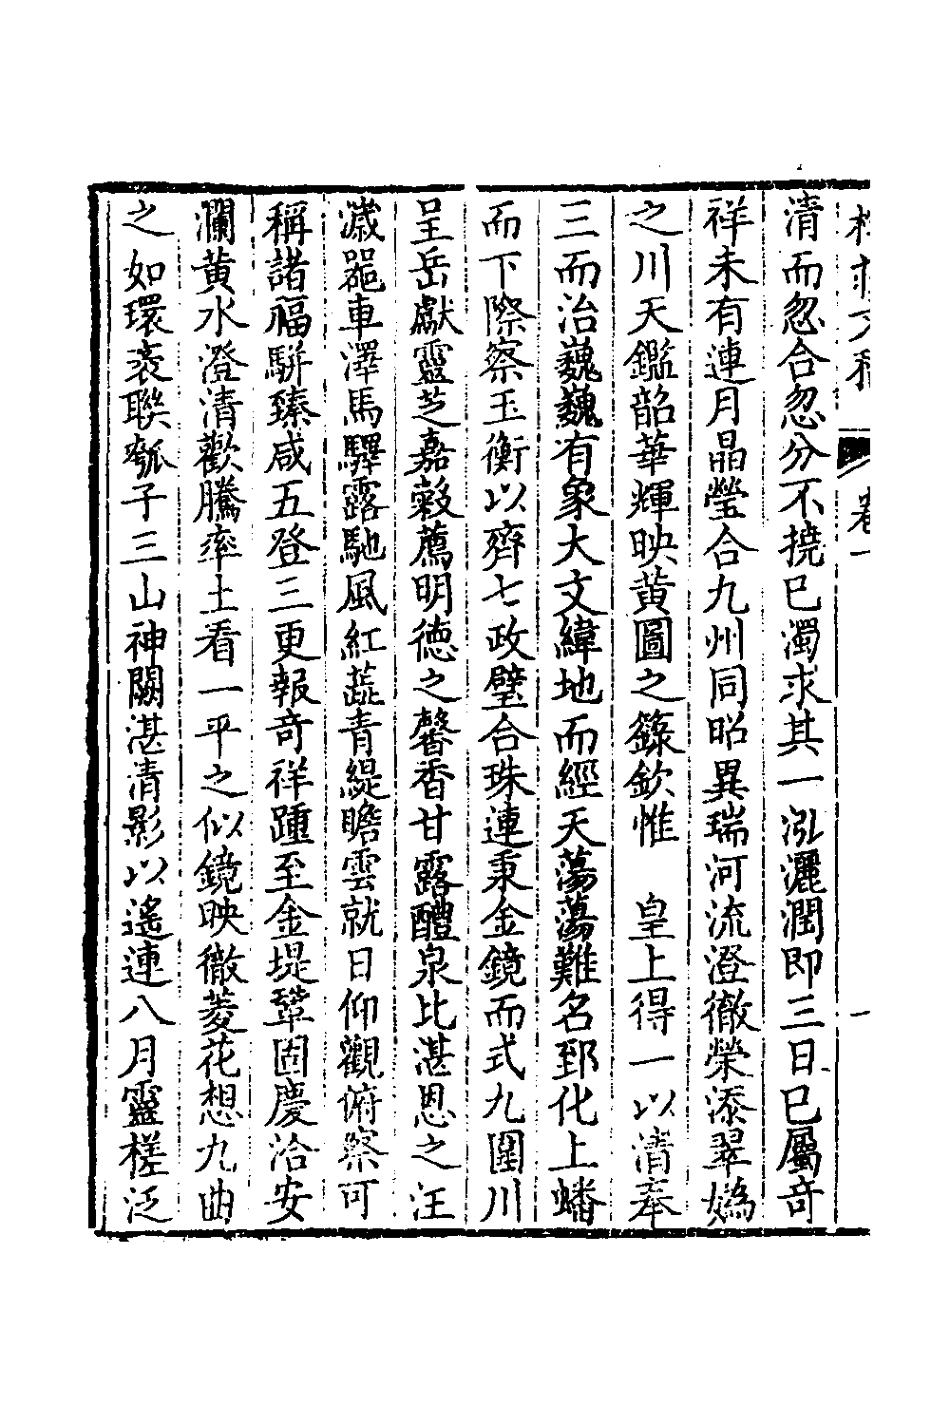 清而忽合忽分不撓已濁求其一泓灑潤即三日已屬竒
祥未有連月晶瑩合九州同昭異瑞河流澄徹榮添翠嬀
之川天鑑韶華輝映黄圖之籙欽惟　皇上得一以清奉
三而治巍巍有象大文緯地而經天蕩蕩難名郅化上蟠
而下際察玉衡以齊七政璧合珠連秉金鏡而式九圍川
呈岳獻靈芝嘉穀薦明德之馨香甘露醴泉比湛恩之汪
濊噐車澤馬驛露馳風紅蕋青緹瞻雲就日仰觀俯察可
稱諸福駢臻咸五登三更報竒祥踵至金堤鞏固慶洽安
瀾黄水澄清歡騰率土看一平之似鏡映徹菱花想九曲
之如環衺聯瓠子三山神闕湛清影以遙連八月靈槎泛
卷一
一